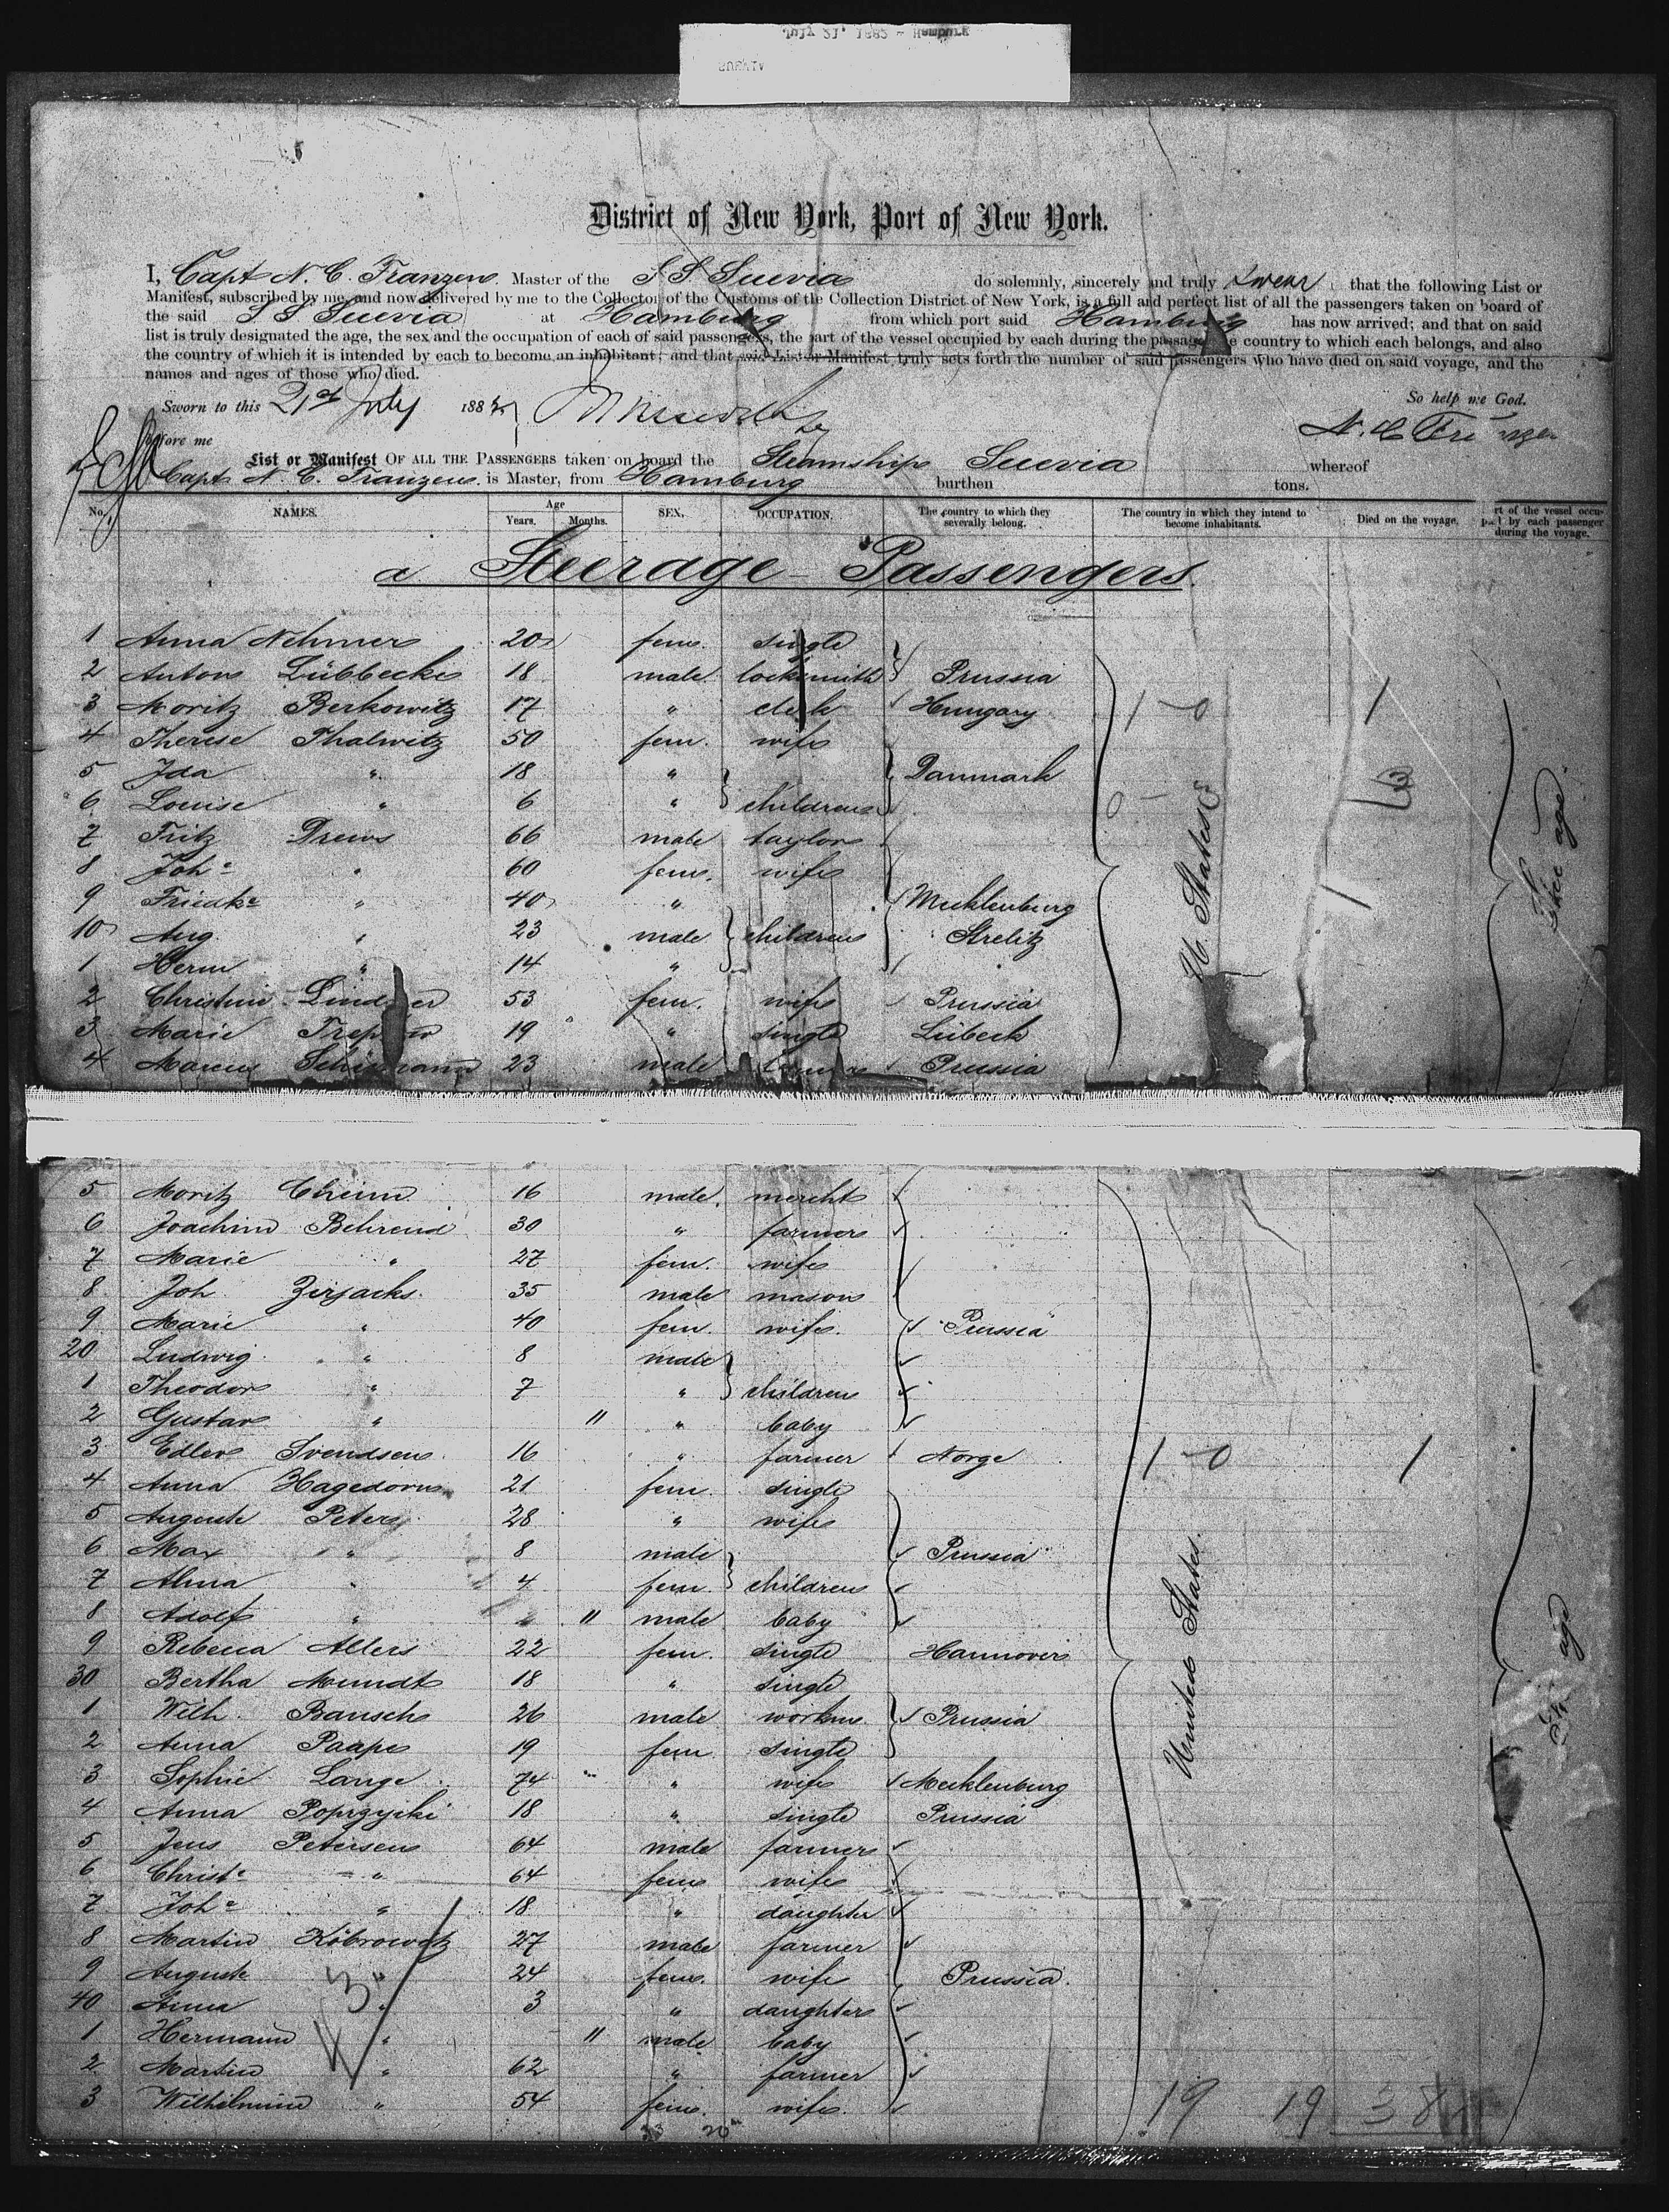 July 21, 1882 - Hamburg
SUEVIA
District of New York, Port of New York.
I, Capt N. C. Franzen. Master of the S S Suevia do solemnly, sincerely and truly swear that the following List or
Manifest, subscribed by me, and now delivered by me to the Collector of the Customs of the Collection District of New York, is a full and perfect list of all the passengers taken on board of
the said S S Suevia at Hamburg from which port said Hamburg has now arrived; and that on said
list is truly designated the age, the sex and the occupation of each of said passengers, the part of the vessel occupied by each during the passage, the country to which each belongs, and also
the country of which it is intended by each to become an inhabitant; and that said List or Manifest truly sets forth the number of said passengers who have died on said voyage, and the
names and ages of those who died.
Sworn to this 21st July 1882 So help me God.
before me N. C. Franzen
List or Manifest OF ALL THE PASSENGERS taken on board the Steamship Suevia whereof
Capt N. C. Franzen is Master, from Hamburg burthen tons.
No. NAMES. Age Years. Months. SEX. OCCUPATION. The country to which they severally belong. The country in which they intend to become inhabitants. Died on the voyage. Part of the vessel occupied by each passenger during the voyage.
a Steerage-Passengers.
1 Anna Nehmer 20 fem. single
2 Anton Lübbecke 18 male locksmith Prussia
3 Moritz Berkowitz 17 " clerk Hungary 1 - 0 1
4 Therese Thalwitz 50 fem. wife
5 Ida " 18 " Danmark
6 Louise " 6 " children
7 Fritz Drews 66 male taylor
8 Johe " 60 fem. wife
9 Friedke " 40 " Mecklenburg
10 Aug. " 23 male children Strelitz
1 Herm " 14 "
2 Christine Lindner 53 fem. wife Prussia
3 Marie 19 " single Lübeck
4 Marcus 23 male Prussia
U. States
5 Moritz Cheim 16 male mercht
6 Joachim Behrend 30 " farmer
7 Marie " 27 fem. wife
8 Joh. Zirjacks 35 male mason
9 Marie " 40 fem. wife. Prussia
20 Ludwig " 8 male
1 Theodor " 7 " children
2 Gustav " 11 " baby
3 Edler Svendsen 16 " farmer Norge 1 - 0 1
4 Anna Hagedorn 21 fem. single
5 Auguste Peters 28 " wife
6 Max " 8 male Prussia
7 Alma " 4 fem. children
8 Adolf " " 11 male baby
9 Rebecca Allers 22 fem. single Hannover
30 Bertha Mundt 18 " single
1 Wilh. Bausch 26 male workm. Prussia
2 Anna Paape 19 fem. single
3 Sophie Lange 74 " wife Mecklenburg
4 Anna 18 " single Prussia
5 Jens Petersen 64 male farmer
6 Christe " 64 fem. wife
7 Johe " 18 " daughter
8 Martin 27 male farmer
9 Auguste " 24 fem. wife Prussia.
40 Anna " 3 " daughter
1 Hermann " 11 male baby
2 Martin " 62 " farmer
3 Wilhelmine " 54 fem. wife.
United States
19 19 38